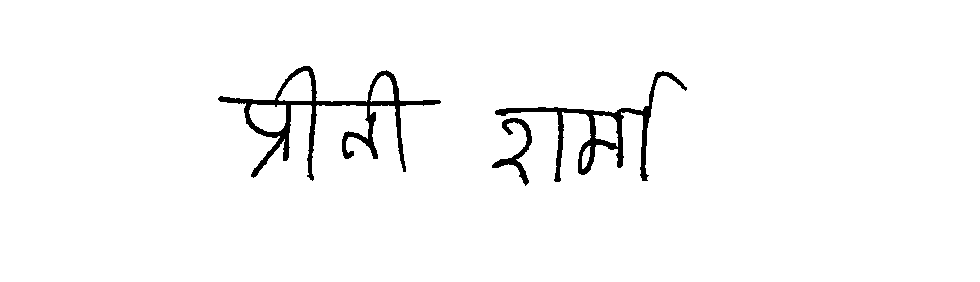 प्रीती शर्मा